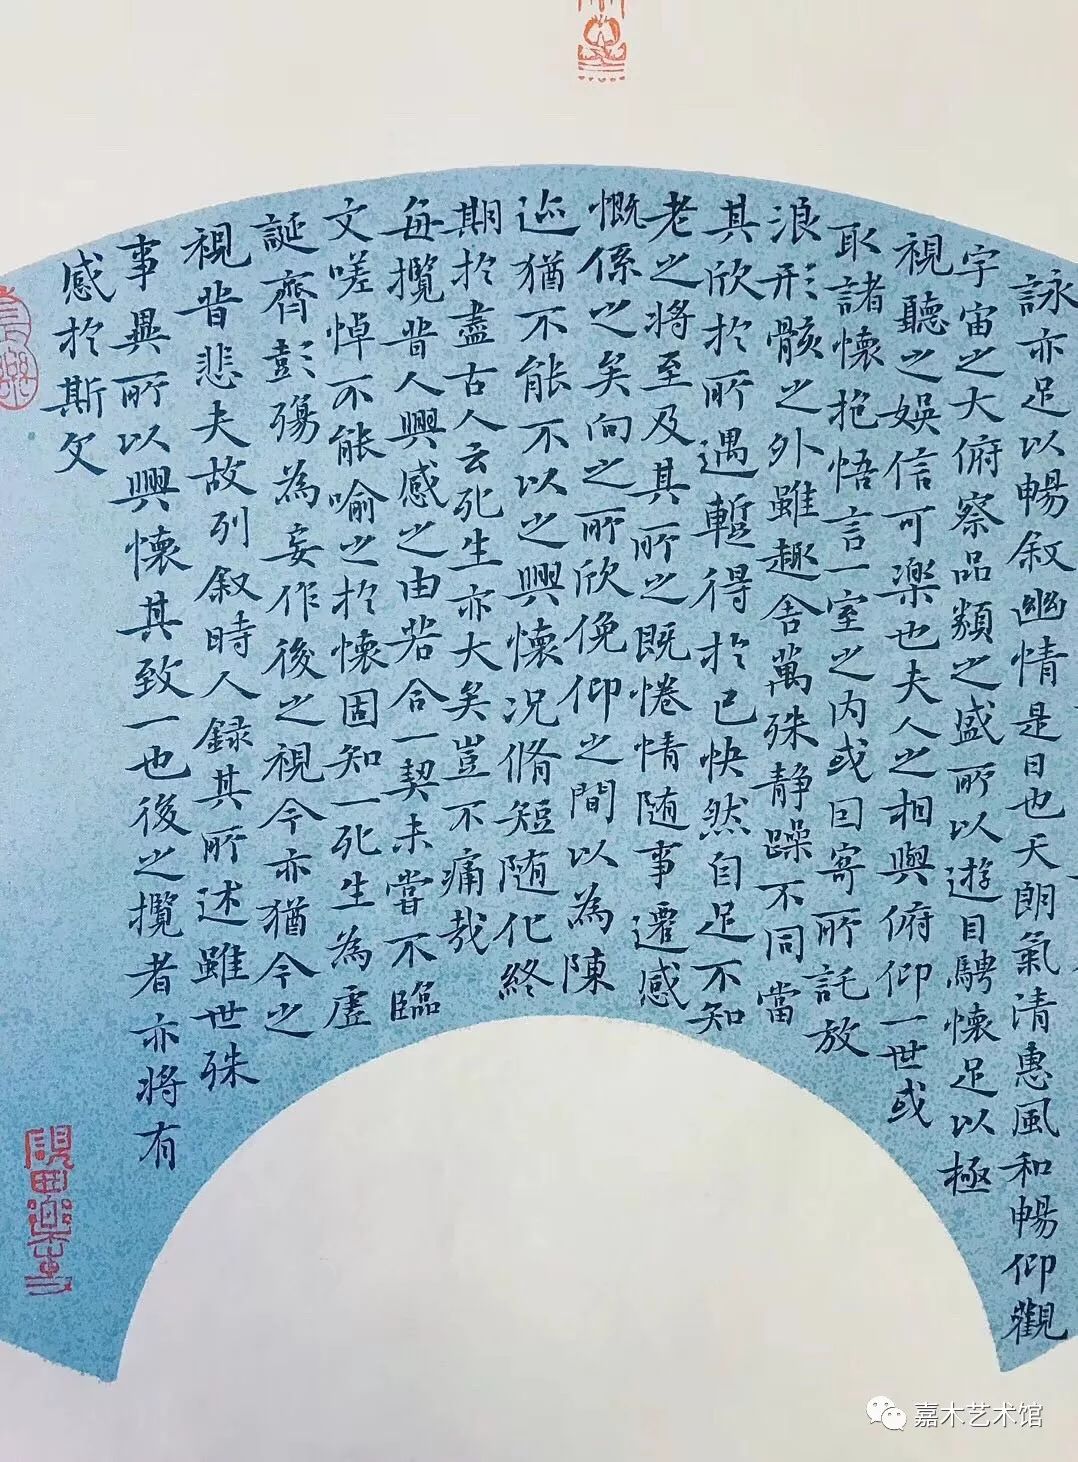 詠亦足以暢叙幽情是日也天朗氣清惠風和暢仰觀
宇宙之大俯察品類之盛所以遊目騁懷足以極
視聽之娛信可樂也夫人之相與俯仰一世或
取諸懷抱悟言一室之内或因寄所託放
浪形骸之外雖趣舍萬殊静躁不同當
其欣於所遇暫得於己快然自足不知
老之將至及其所之既惓情随事遷感
慨係之矣向之所欣俛仰之間以為陳
迹猶不能不以之興懷況脩短随化終
期於盡古人云死生亦大矣豈不痛哉
每攬昔人興感之由若合一契未嘗不臨
文嗟悼不能喻之於懷固知一死生為虚
誕齊彭殤為妄作後之視今亦猶今之
視昔悲夫故列叙時人録其所述雖世殊
事異所以興懷其致一也後之攬者亦將有
感於斯文
嘉木艺术馆